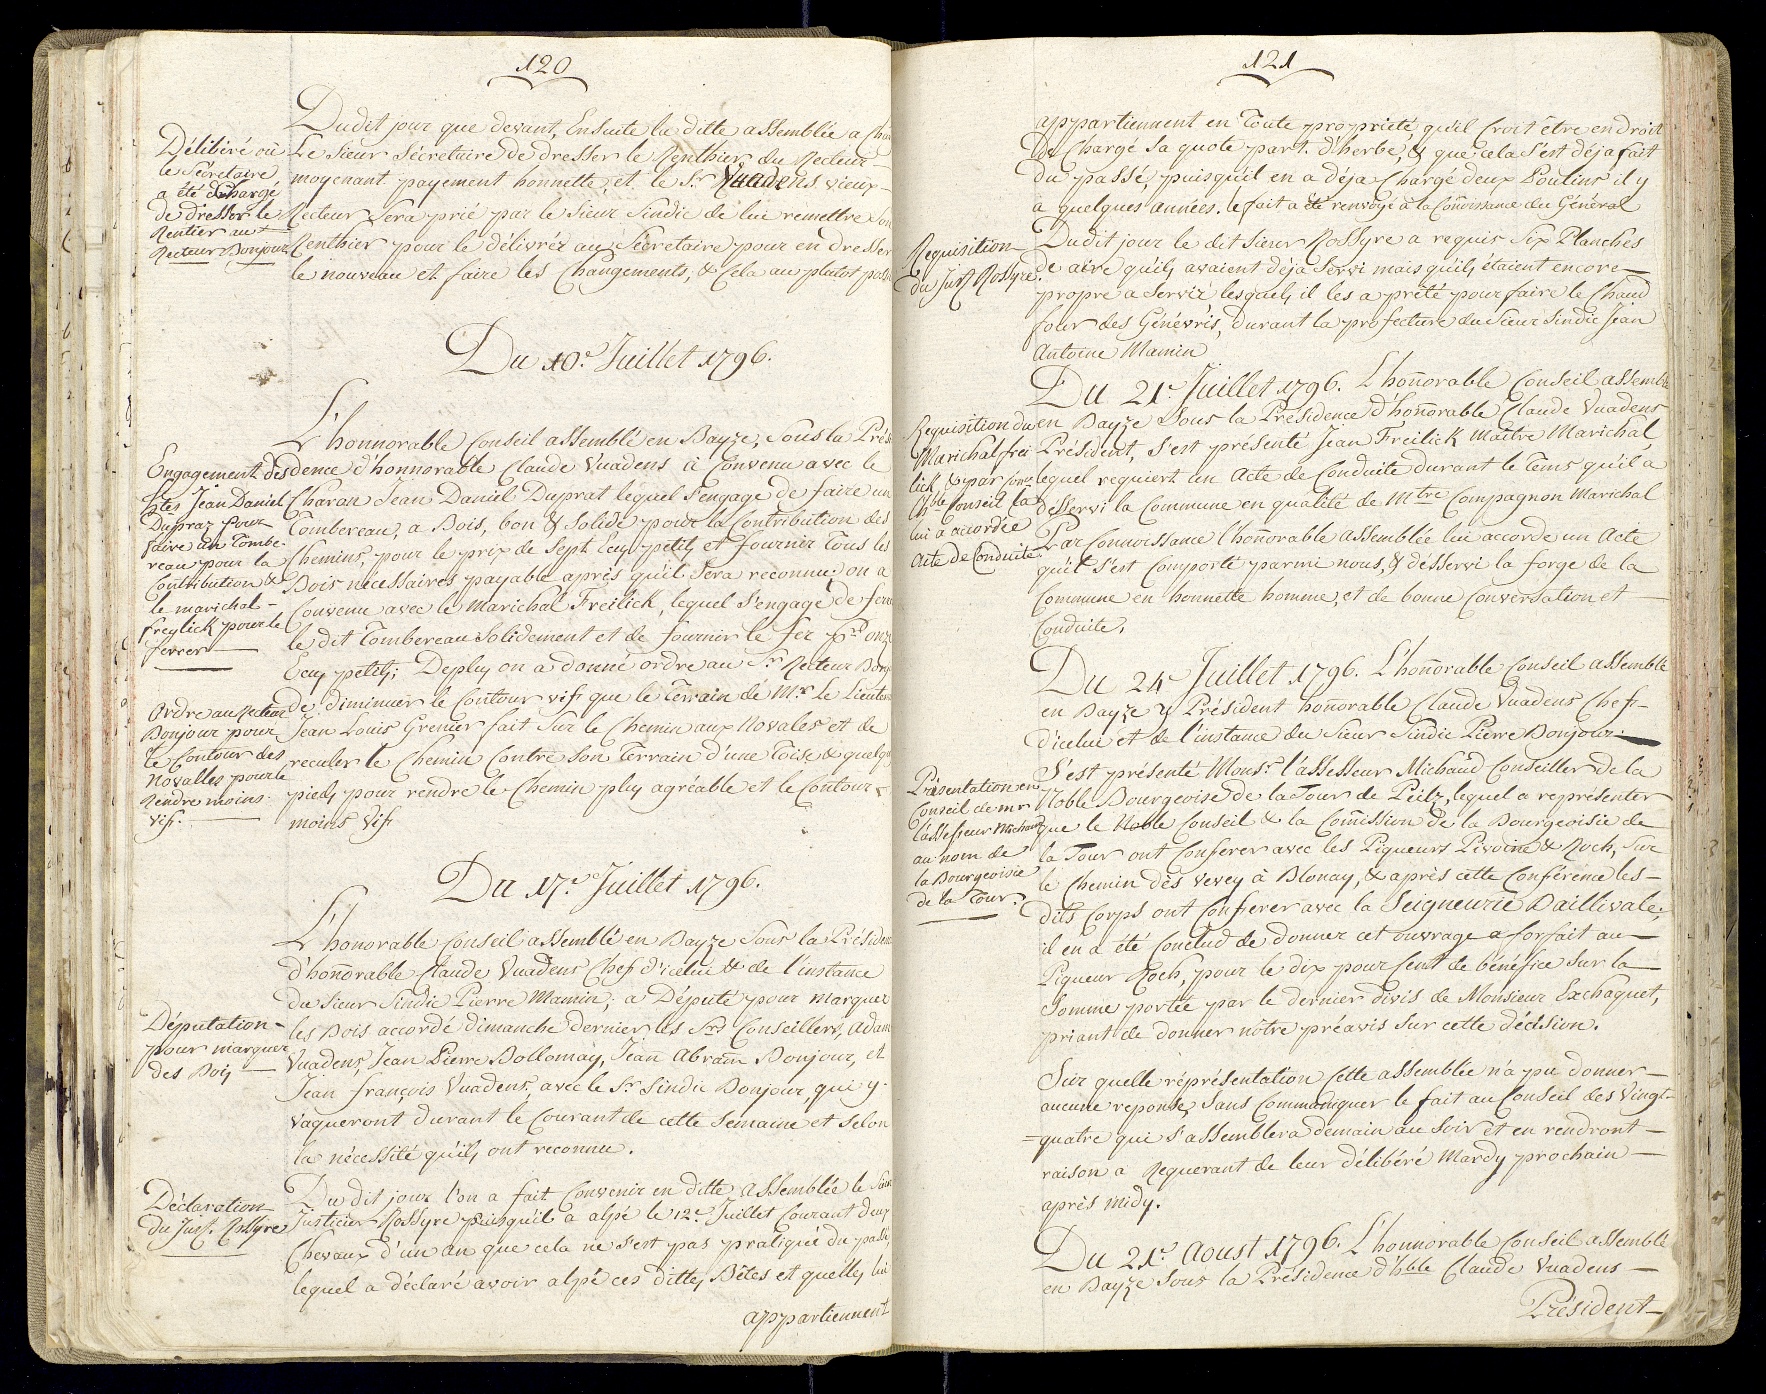 120
Dudit jour que devant, Ensuite la ditte assemblée a Char
Délibéré où
le Sécretaire
a été Chargé
de dresser le
Rentier au
Recteur Bonjour
Le Sieur Sécretaire de dresser le Renthier du Recteur
moyenant payement honnette, et le Sr. Vuadens vieux
Recteur Sera prié par le Sieur Sindic de lui remettre Son
Renthier pour le délivrér au Sécretaire pour en dresser
le nouveau et faire les Changements, & Cela au plutot poss
Du 10e. Juillet 1796.
L'honnorable Conseil assemblé en Bayze, Sous la Prési
Engagement dès
hbles Jean Daniel
Dupraz pour
faire un Tombe-
reau pour la
Contribution &
le marichal
freylick pour le
ferrer
dence d'honnorable Claude Vuadens à Convenu avec le
Charon Jean Daniel Duprat lequel S'engage de faire un
Tombereau, a Bois, bon & Solide pour la Contribution des
Chemins, pour le prix de Sept Ecus petits et fournir Tous les
Bois nécessaires payable après qu'il Sera reconnu; on a
Convenu avec le Marichal Freilick, lequel S'engage de ferre
le dit Tombereau Solidement et de fournir le fer pr. onze
Ecus petits; Deplus on a donné ordre au Sr. Recteur Bonj
Ordre au Recteur
Bonjour pour
le Contour des
Novalles pour le
Rendre moins
vif.
de diminuer le Contour vif que le Terrain de Mr. Le Lieuten
Jean Louis Grenier fait Sur le Chemin aux Novales et de
reculer le Chemin Contre Son Terrain d'une Toise & quelqu
pieds pour rendre le Chemin plus agréable et le Contour
moins Vif
Du 17e. Juillet 1796.
L'honorable Conseil assemblé en Bayze Sous la Présiden
d'honnorable Claude Vuadens Chef d'icelui & de l'instance
du Sieur Sindic Pierre Mamin; a Députe pour marquer
Députation
pour marquer
des Bois
les Bois accordé dimanche dernier les Srs. Conseillers, Adam
Vuadens, Jean Pierre Bollomay, Jean Abram Bonjour, et
Jean François Vuadens, avec le Sr. Sindic Bonjour, qui y
Vaqueront durant le Courant de cette Semaine et selon
la nécessité qu'ils ont reconnue.
Déclaration
du Just. Rossyre
Du dit jour l'on a fait Convenir en ditte assemblée le Sieur
Justicier Rossyre puisqu'il a alpé le 12e. Juillet Courant deux
Chevaux d'un an que cela ne s'est pas pratiqué du passé,
lequel a déclaré avoir alpé ces dittes Bêtes et quelles lui
appartiennent
121
appartiennent en Toute proprieté, qu'il Croit être en droit
de Chargé Sa quote part d'herbe, & que cela S'est déja fait
du passé, puisqu'il en a déja Chargé deux Poulins il y
a quelques années. le fait a été renvoyé a la Connoissance du Général
Requisition
du Just Rossyre.
Dudit jour le dit Sieur Rossyre a requis Six Planches
de aire qu'ils avaient déja Servi mais qu'ils étaient encore
propre a Servir lesquels il les a prêté pour faire le Chaud
four des Génévris, durant la profecture du Sieur Sindic Jean
Antoine Mamin
Du 21e. Juillet 1796. L'honnorable Conseil assemblé
Requisition du
Marichal frei
lick & par
hble Conseil la
lui a accordée
Acte de Conduite.
en Bayze Sous la Présidence d'honnorable Claude Vuadens
Président, S'est présenté Jean Freilick Maitre Marichal
lequel requiert un Acte de Conduite durant le Tems qu'il a
desservi la Commune en qualité de Mtre Compagnon Marichal
Par Connoissance l'honorable assemblée lui accorde un Acte
qu'il S'est Comporté parmi nous, & désservi la forge de la
Commune en honnette homme, et de bonne Conversation et
Conduite.
Du 24e Juillet 1796. L'honnorable Conseil assemblé
en Bayze y Président honnorable Claude Vuadens Chef
d'icelui et de l'instance du Sieur Sindic Pierre Bonjour.
Présentation en
Conseil de mr
l'assesseur Michaud
au nom de
la Bourgeoisie
de la Tour.
S'est présenté Monsr. l'assesseur Michaud Conseiller de la
Noble Bourgeoisie de la Tour de Peilz, lequel a représenter
que le Noble Conseil & la Commission de la Bourgeoisie de
la Tour ont Conferer avec les Piqueurs Pivoine & Roch, Sur
le Chemin dès vevey à Blonay, & après cette Conférence les
dits Corps ont Conferer avec la Seigneurie Baillivale,
il en a été Conclud de donner cet ouvrage a forfait au
Piqueur Roch, pour le dix pour Cent de bénéfice Sur la
Somme portée par le dernier divis de Monsieur Exchaquet,
priant de donner nôtre préavis Sur cette décision.
Sur quelle réprésentation Cette assemblée n'a pu donner
aucune reponse, Sans Communiquer le fait au Conseil des Vingt
=quatre qui S'assemblera demain au Soir et en rendront
raison a Requerant de leur délibéré Mardy prochain
après midy.
Du 21e. Aoust 1796. L'honnorable Conseil assemblé
en Bayze Sous la Présidence d'hble Claude Vuadens
Président